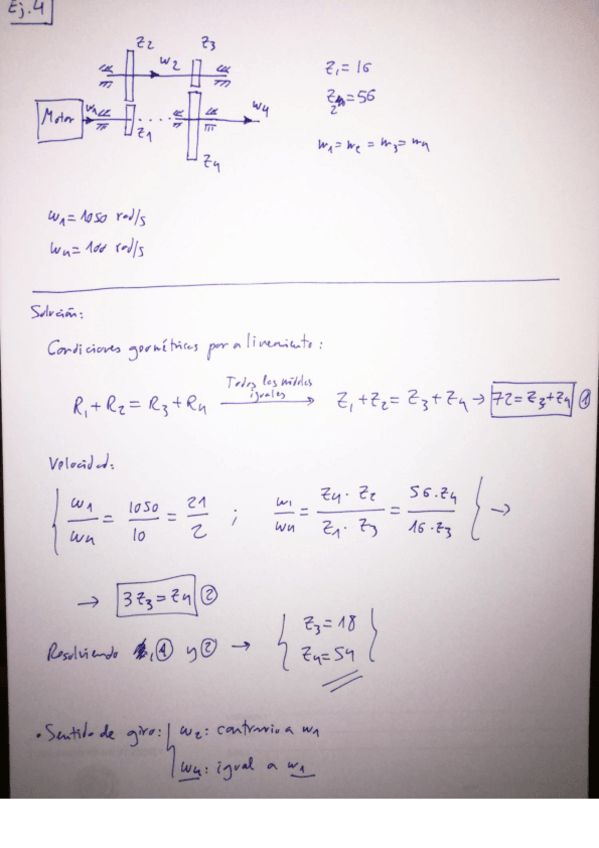 Ej.4
Z2 Z3
w2
Z1 = 16
Z2 = 56
Motor w1 w4
Z1
Z4
m1 = m2 = m3 = m4
w1 = 1050 rad/s
w4 = 100 rad/s
Solución:
Condiciones geométricas por alineamiento:
R1 + R2 = R3 + R4 Todos los módulos iguales → Z1 + Z2 = Z3 + Z4 → 72 = Z3 + Z4 ①
Velocidad:
{ w1/w4 = 1050/10 = 21/2 ; w1/w4 = Z4 · Z2 / Z1 · Z3 = 56 · Z4 / 16 · Z3 } →
→ 3Z3 = Z4 ②
Resolviendo ① y ② → { Z3 = 18
Z4 = 54 }
• Sentido de giro: { w2: contrario a w1
w4: igual a w1